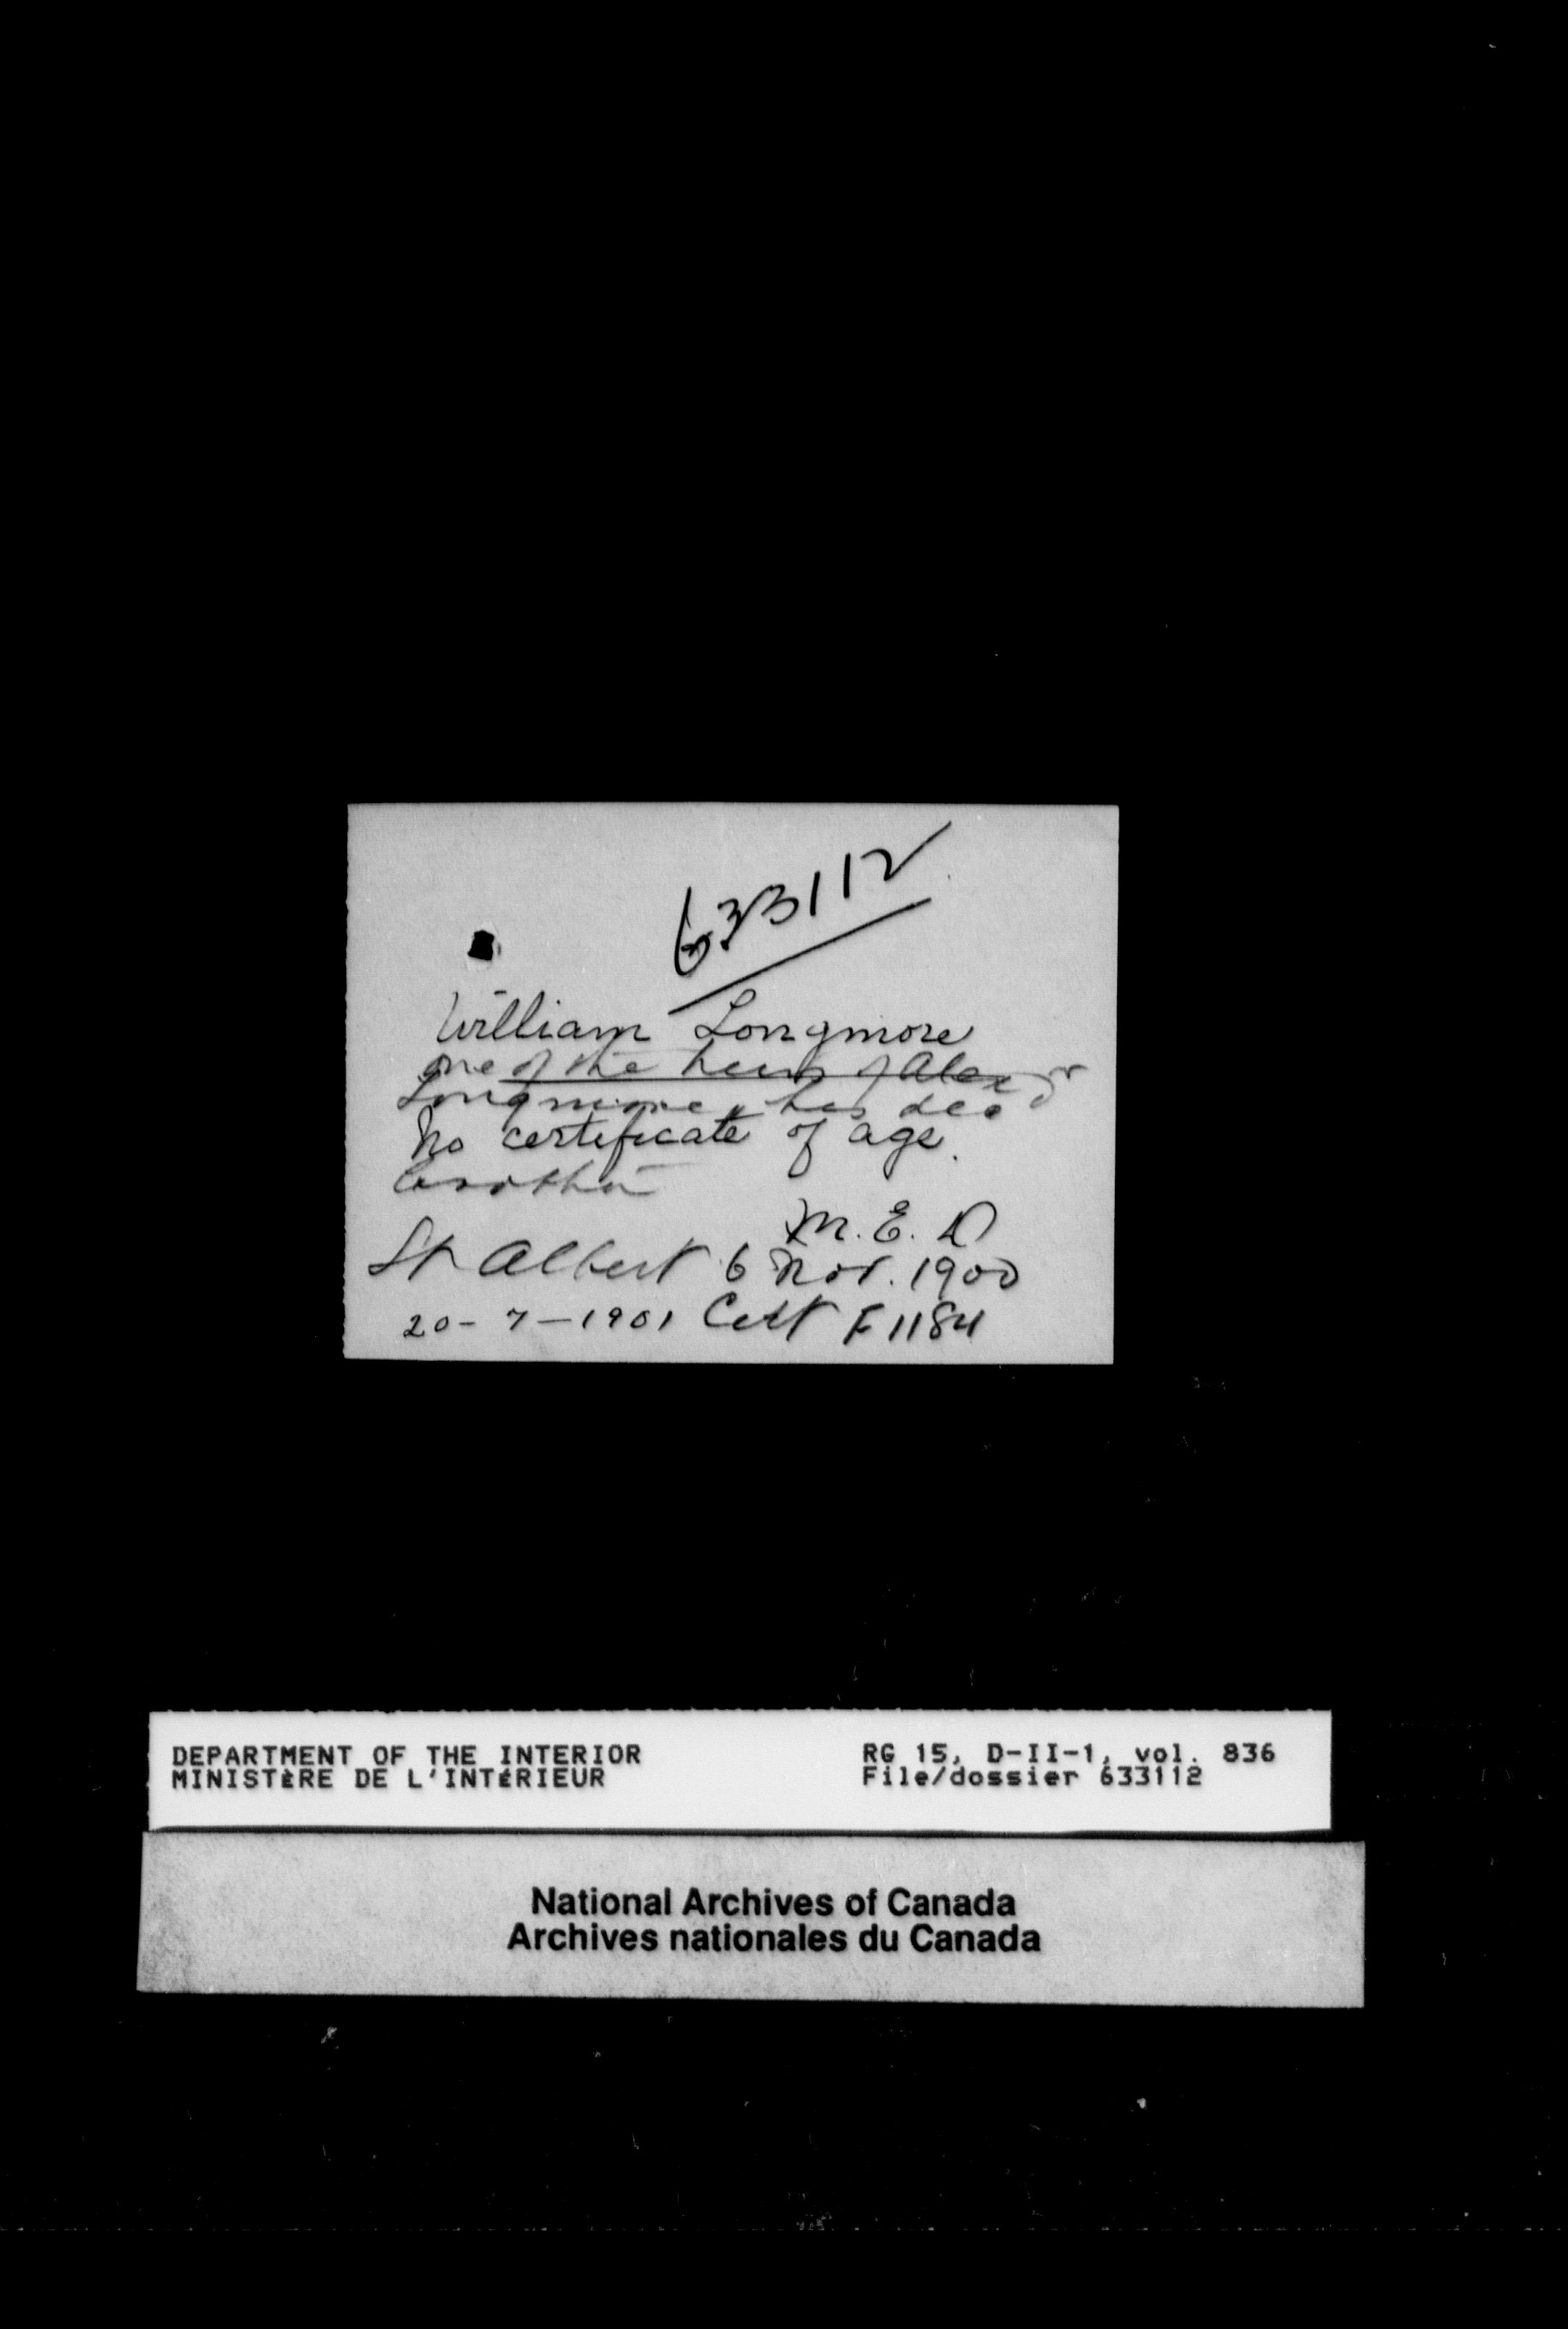 633112
William Longmore
one of the heirs of Alexdr
Longmore, his dec
No certificate of age.
M. E. D
St Albert 6 Nov. 1900
20-7-1901 Cert F 1184
DEPARTMENT OF THE INTERIOR
MINISTÈRE DE L'INTÉRIEUR
RG 15, D-II-1, vol. 836
File/dossier 633112
National Archives of Canada
Archives nationales du Canada